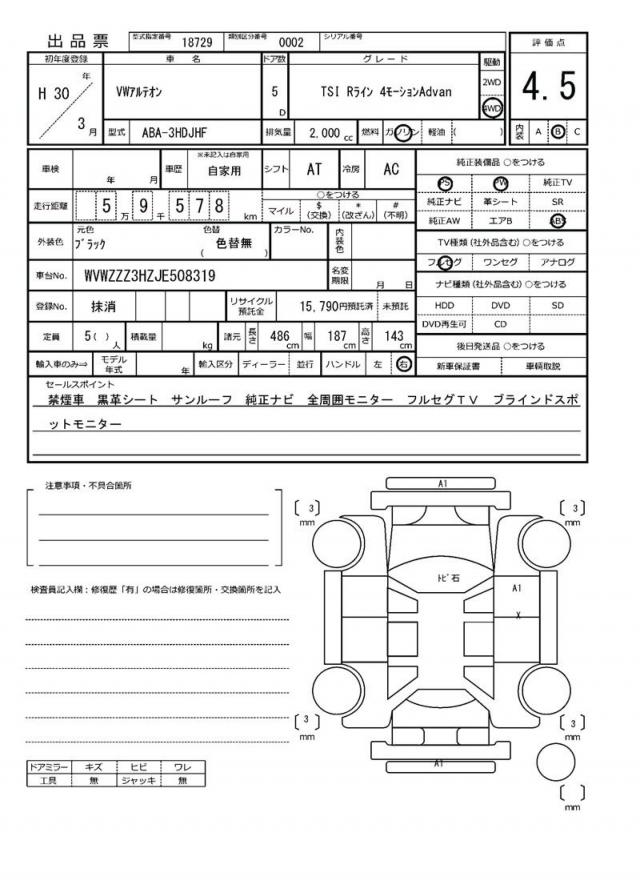 出品票 型式指定番号 18729 類別区分番号 0002 シリアル番号
評価点
4.5
初年度登録 車名 ドア数 グレード 駆動
H 30 年 VWｱﾙﾃｵﾝ 5 D TSI Rライン 4モーションAdvan 2WD
3 月 4WD
型式 ABA-3HDJHF 排気量 2,000 cc 燃料 ガソリン 軽油 ( ) 内装 A B C
車検 年 月 車歴 ※未記入は自家用 自家用 シフト AT 冷房 AC
走行距離 5 万 9 千 5 7 8 km ○をつける
マイル $ (交換) * (改ざん) # (不明)
外装色 元色 ﾌﾞﾗｯｸ 色替 ( 色替無 ) カラーNo. 内装色
車台No. WVWZZZ3HZJE508319 名変期限 月 日
登録No. 抹消 リサイクル預託金 15,790円預託済 未預託
定員 5( ) 人 積載量 kg 諸元 長さ 486 cm 幅 187 cm 高さ 143 cm
輸入車のみ⇒ モデル年式 年 輸入区分 ディーラー 並行 ハンドル 左 右
純正装備品 ○をつける
PS PW 純正TV
純正ナビ 革シート SR
純正AW エアB ABS
TV種類 (社外品含む) ○をつける
フルセグ ワンセグ アナログ
ナビ種類 (社外品含む) ○をつける
HDD DVD SD
DVD再生可 CD
後日発送品 ○をつける
新車保証書 車輌取説
セールスポイント
禁煙車 黒革シート サンルーフ 純正ナビ 全周囲モニター フルセグTV ブラインドスポ
ットモニター
注意事項・不具合箇所
検査員記入欄：修復歴「有」の場合は修復箇所・交換箇所を記入
A1
[ 3 ] mm
[ 3 ] mm
ﾄﾋﾞ石
A1
X
[ 3 ] mm
[ 3 ] mm
A1
[ ] mm
ドアミラー キズ ヒビ ワレ
工具 無 ジャッキ 無